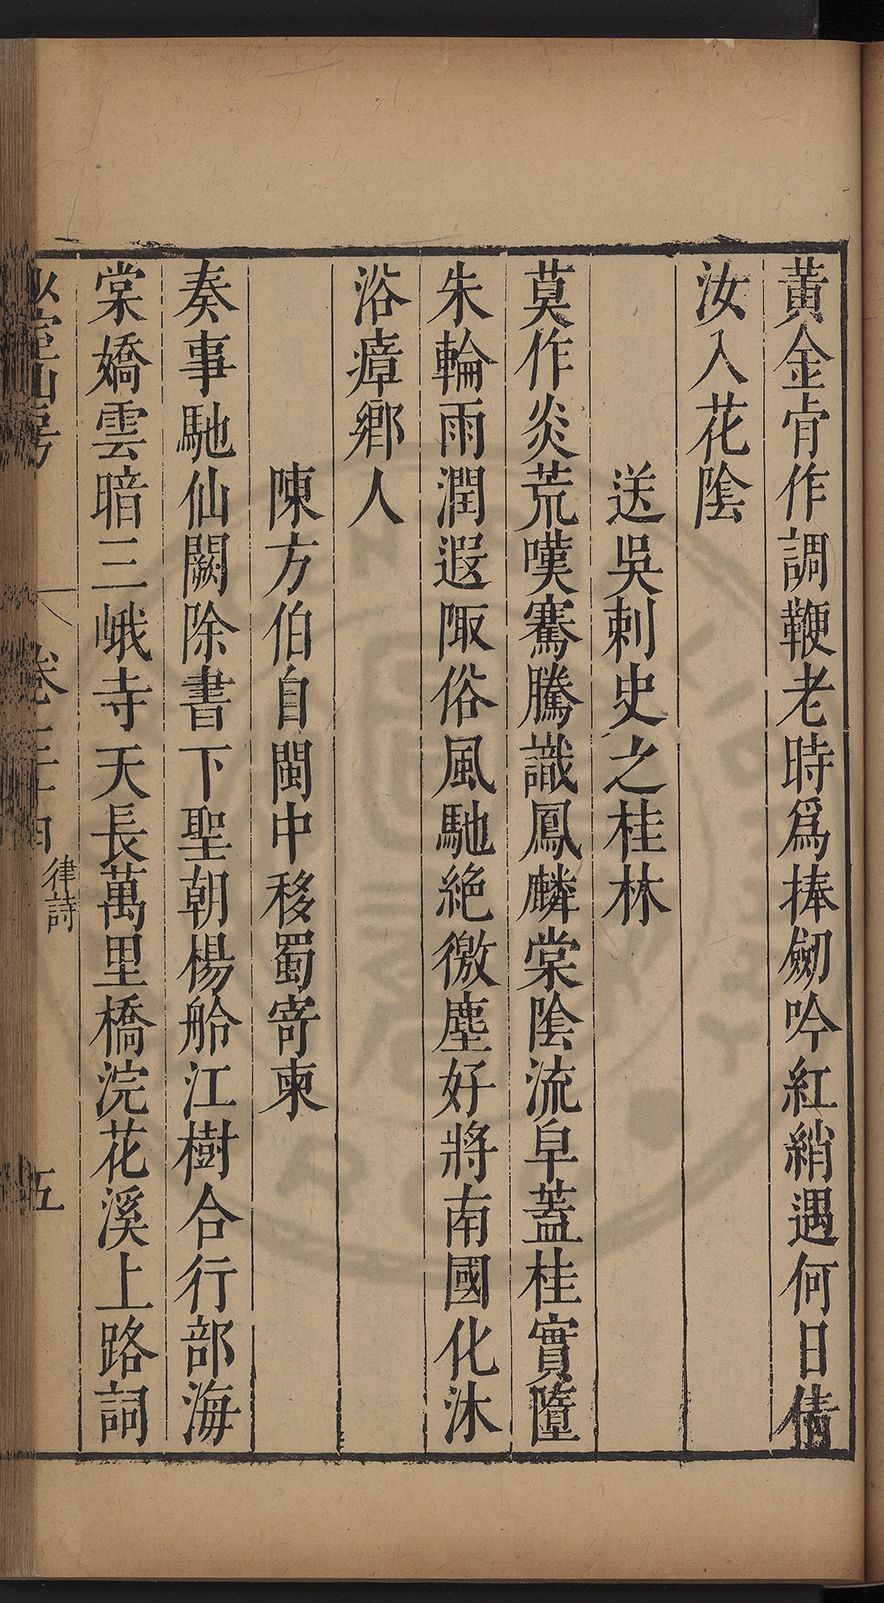 黃金肯作調鞭老時爲捧劒吟紅綃遇何日倩
汝入花陰
送吳刺史之桂林
莫作炎荒嘆騫騰識鳳麟棠陰流皁蓋桂實墮
朱輪雨潤遐陬俗風馳絶徼塵好將南國化沐
浴瘴鄉人
陳方伯自閩中移蜀寄柬
奏事馳仙闕除書下聖朝楊舲江樹合行部海
棠嬌雲暗三峨寺天長萬里橋浣花溪上路詞
山房 卷 律詩 五